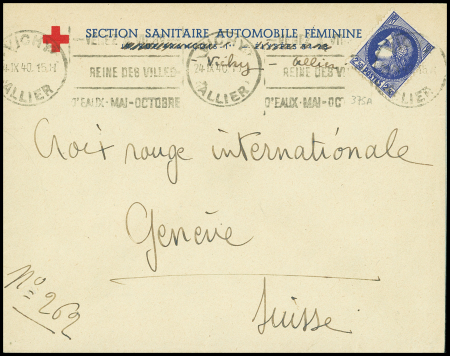 SECTION SANITAIRE AUTOMOBILE FÉMININE
Vichy - Allier
VICHY
24·IX 40·15·H
ALLIER
REINE DES VILLES
D'EAUX·MAI·OCTOBRE
VICHY
24·IX 40·1
ALLIER
REINE DES VILLES
D'EAUX·MAI·OCT
ALLIER
375A
Croix rouge internationale
Genève
Suisse
No 262